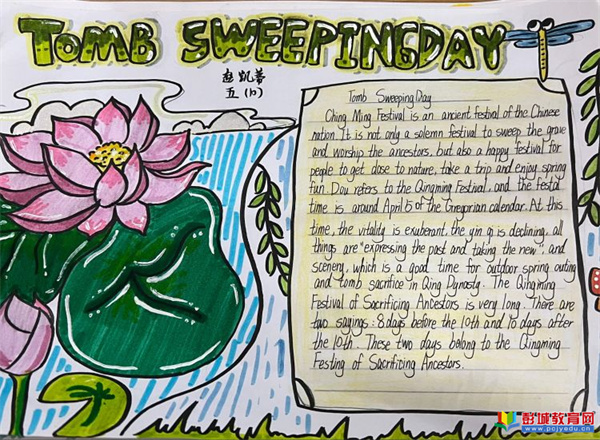 TOMB SWEEPINGDAY
赵凯蒂
五(10)
Tomb SweepingDay
Ching Ming Festival is an ancient festival of the Chinese
nation. It is not only a solemn festival to sweep the grave
and worship the ancestors, but also a happy festival for
people to get close to nature, take a trip and enjoy spring
fun. Day refers to the Qingming Festival, and the festal
time is around April 5 of the Gregorian calendar. At this
time, the vitality is exuberant, the yin qi is declining, all
things are "expressing the past and taking the new", and
scenery, which is a good time for outdoor spring outing
and tomb sacrifice in Qing Dynasty. The Qingming
Festival of Sacrificing Ancestors is very long. There are
two sayings: 8 days before the 10th and 10 days after
the 10th. These two days belong to the Qingming
Festing of Sacrificing Ancestors.
彭城教育网
www.pcjyedu.cn